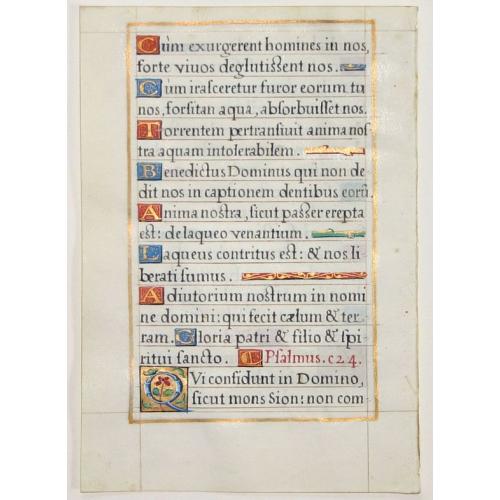 Cum exurgerent homines in nos,
forte viuos deglutissent nos.
Cum irasceretur furor eorum in
nos, forsitan aqua, absorbuisset nos.
Torrentem pertransiuit anima nos
tra aquam intolerabilem.
Benedictus Dominus qui non de
dit nos in captionem dentibus eorũ.
Anima nostra, sicut passer erepta
est: de laqueo venantium.
Laqueus contritus est: & nos li
berati sumus.
Adiutorium nostrum in nomi
ne domini: qui fecit cælum & ter
ram. Gloria patri & filio & spi
ritui sancto. Psalmus. c24.
QVi confidunt in Domino,
sicut mons Sion: non com